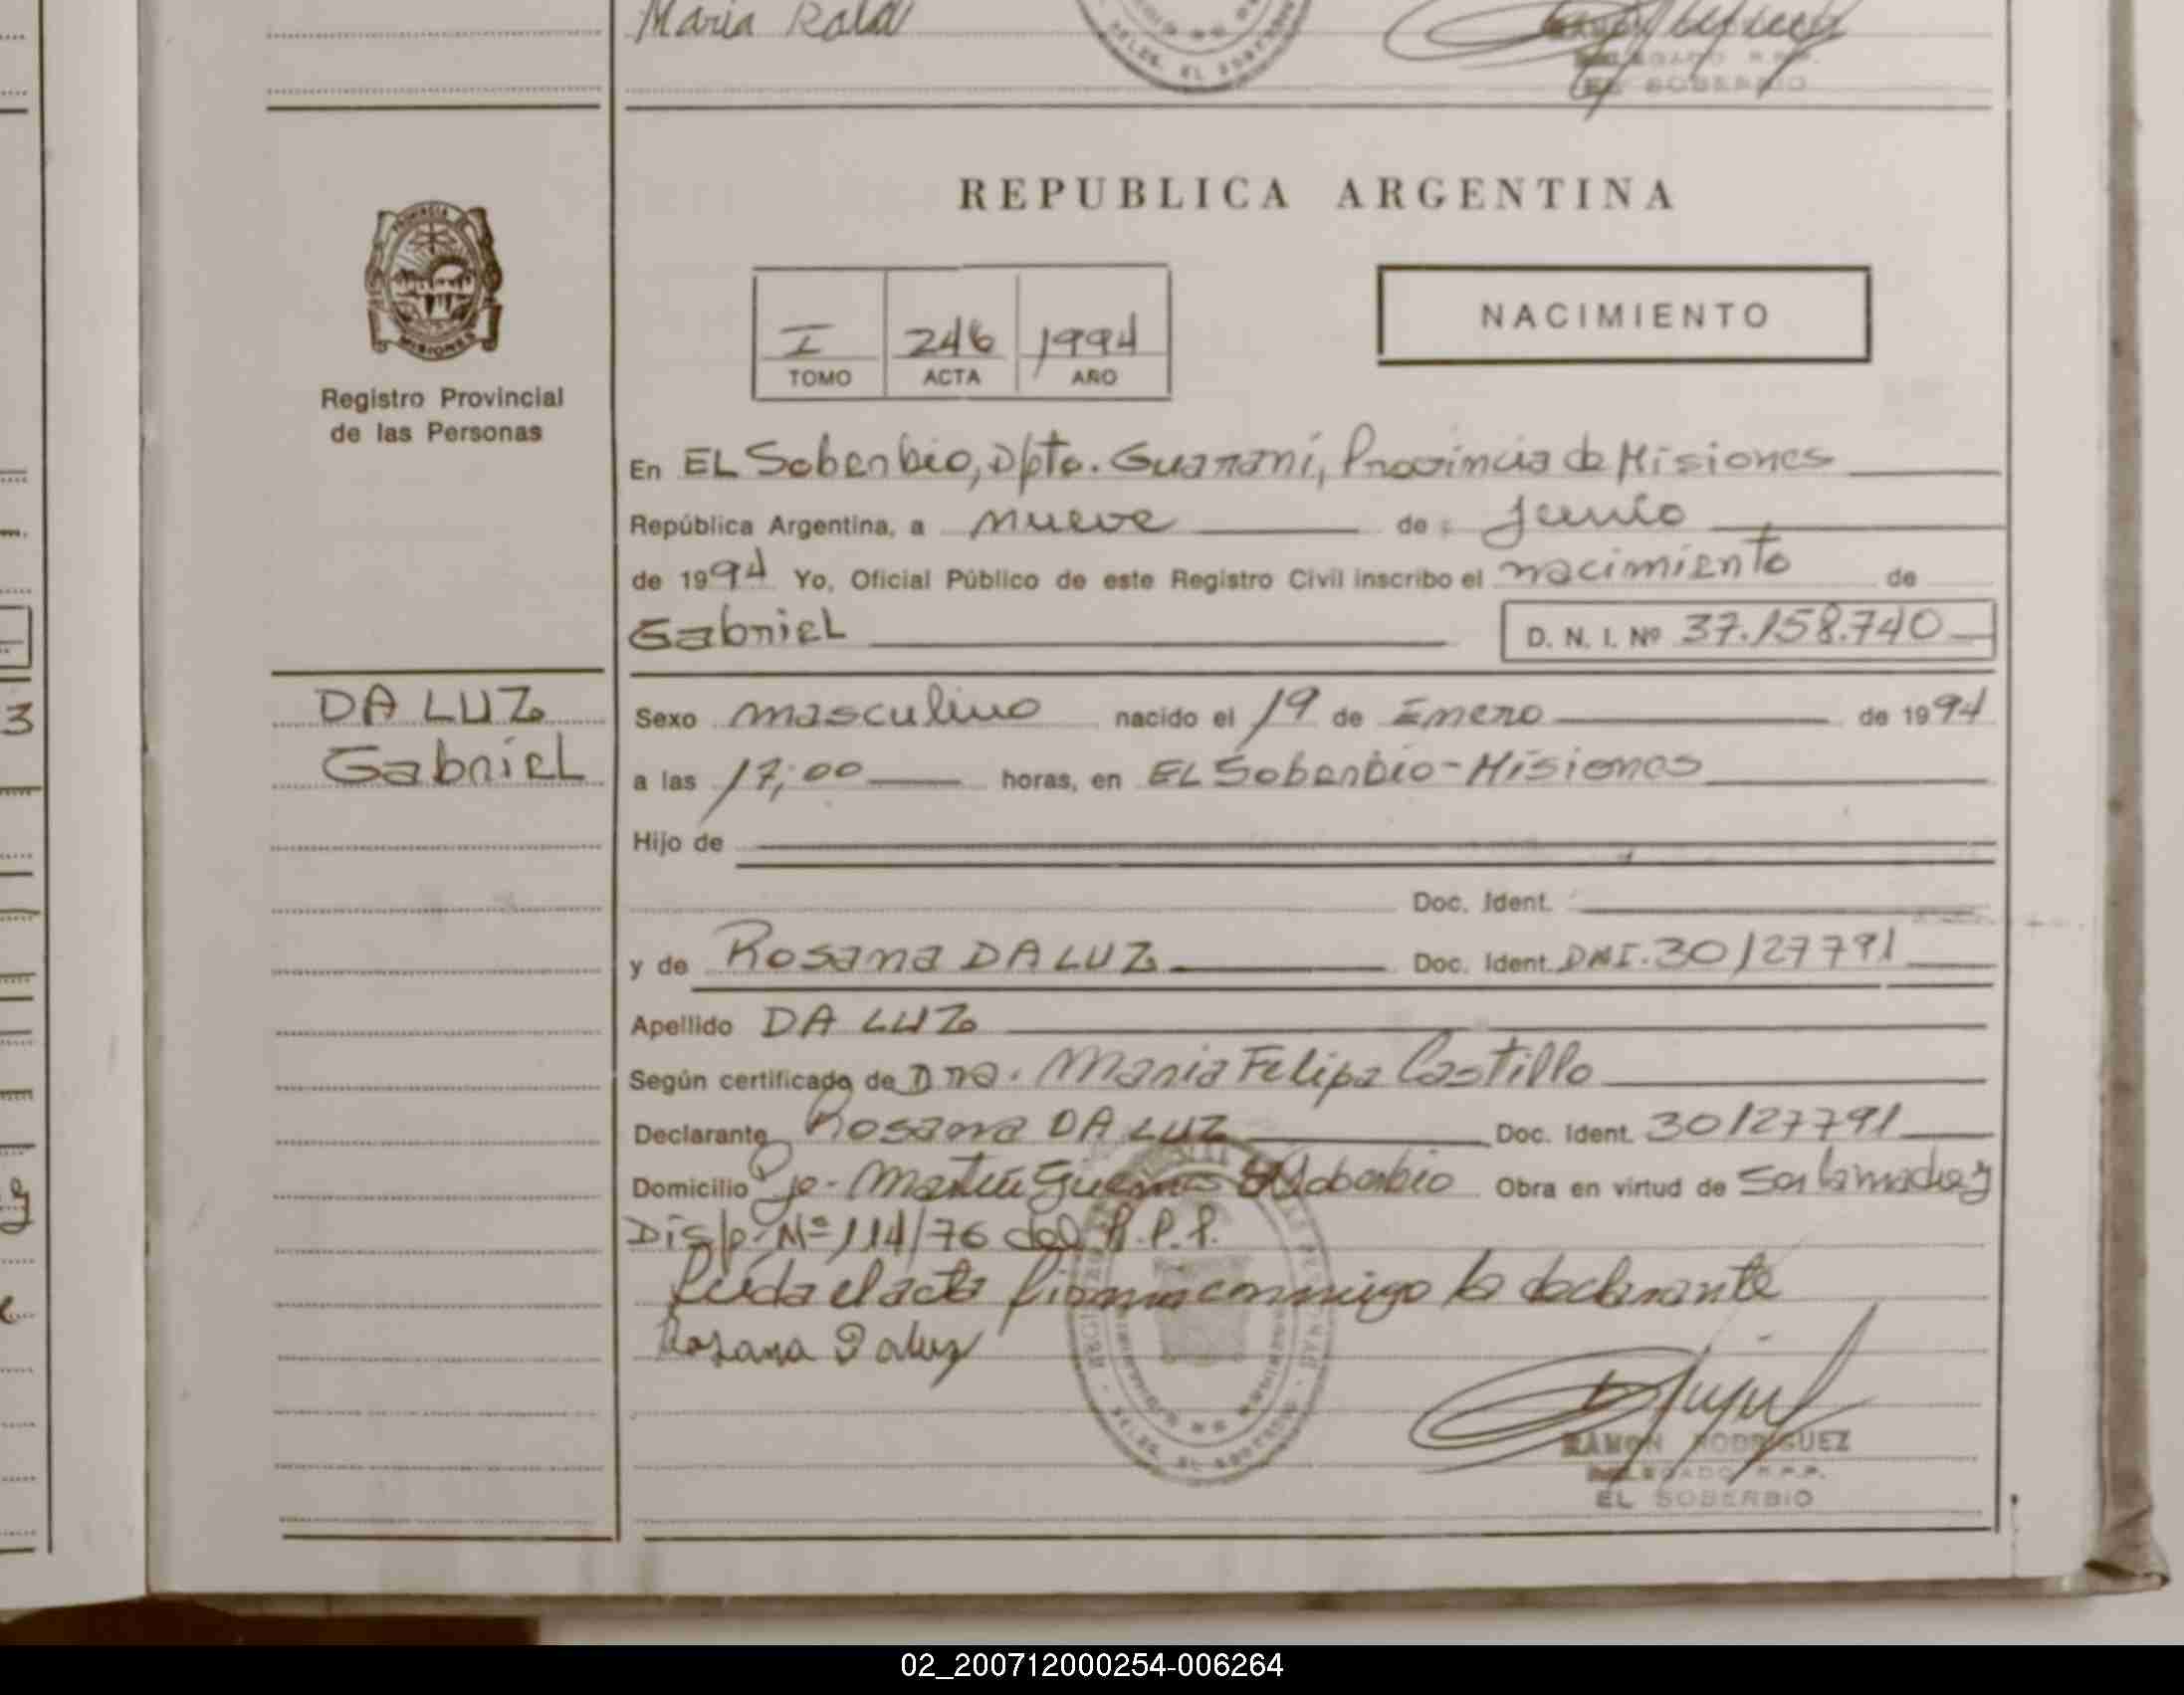 Maria Rosa
EL SOBERBIO
REPUBLICA ARGENTINA
NACIMIENTO
I 246 1994
TOMO ACTA AÑO
PROVINCIA DE
MISIONES
Registro Provincial
de las Personas
En EL Soberbio, Dpto. Guaraní, Provincia de Misiones
República Argentina, a nueve de junio
de 1994 Yo, Oficial Público de este Registro Civil inscribo el nacimiento de
Gabriel D. N. I. Nº 37.158.740
DA LUZ
Gabriel
Sexo masculino nacido el 19 de Enero de 1994
a las 17,00 horas, en EL Soberbio - Misiones
Hijo de
Doc. Ident.
y de Rosana DA LUZ Doc. Ident. DNI. 30127791
Apellido DA LUZ
Según certificado de Dra. Maria Felipa Castillo
Declarante Rosana DA LUZ Doc. Ident. 30127791
Domicilio Pje. Martin Guemes El Soberbio Obra en virtud de Ser la madre y
Disp. Nº 114/76 del R.P.P.
Leída el acta firma conmigo la declarante
Rosana Daluz
RAMON RODRIGUEZ
DELEGADO R.P.P.
EL SOBERBIO
02_200712000254-006264